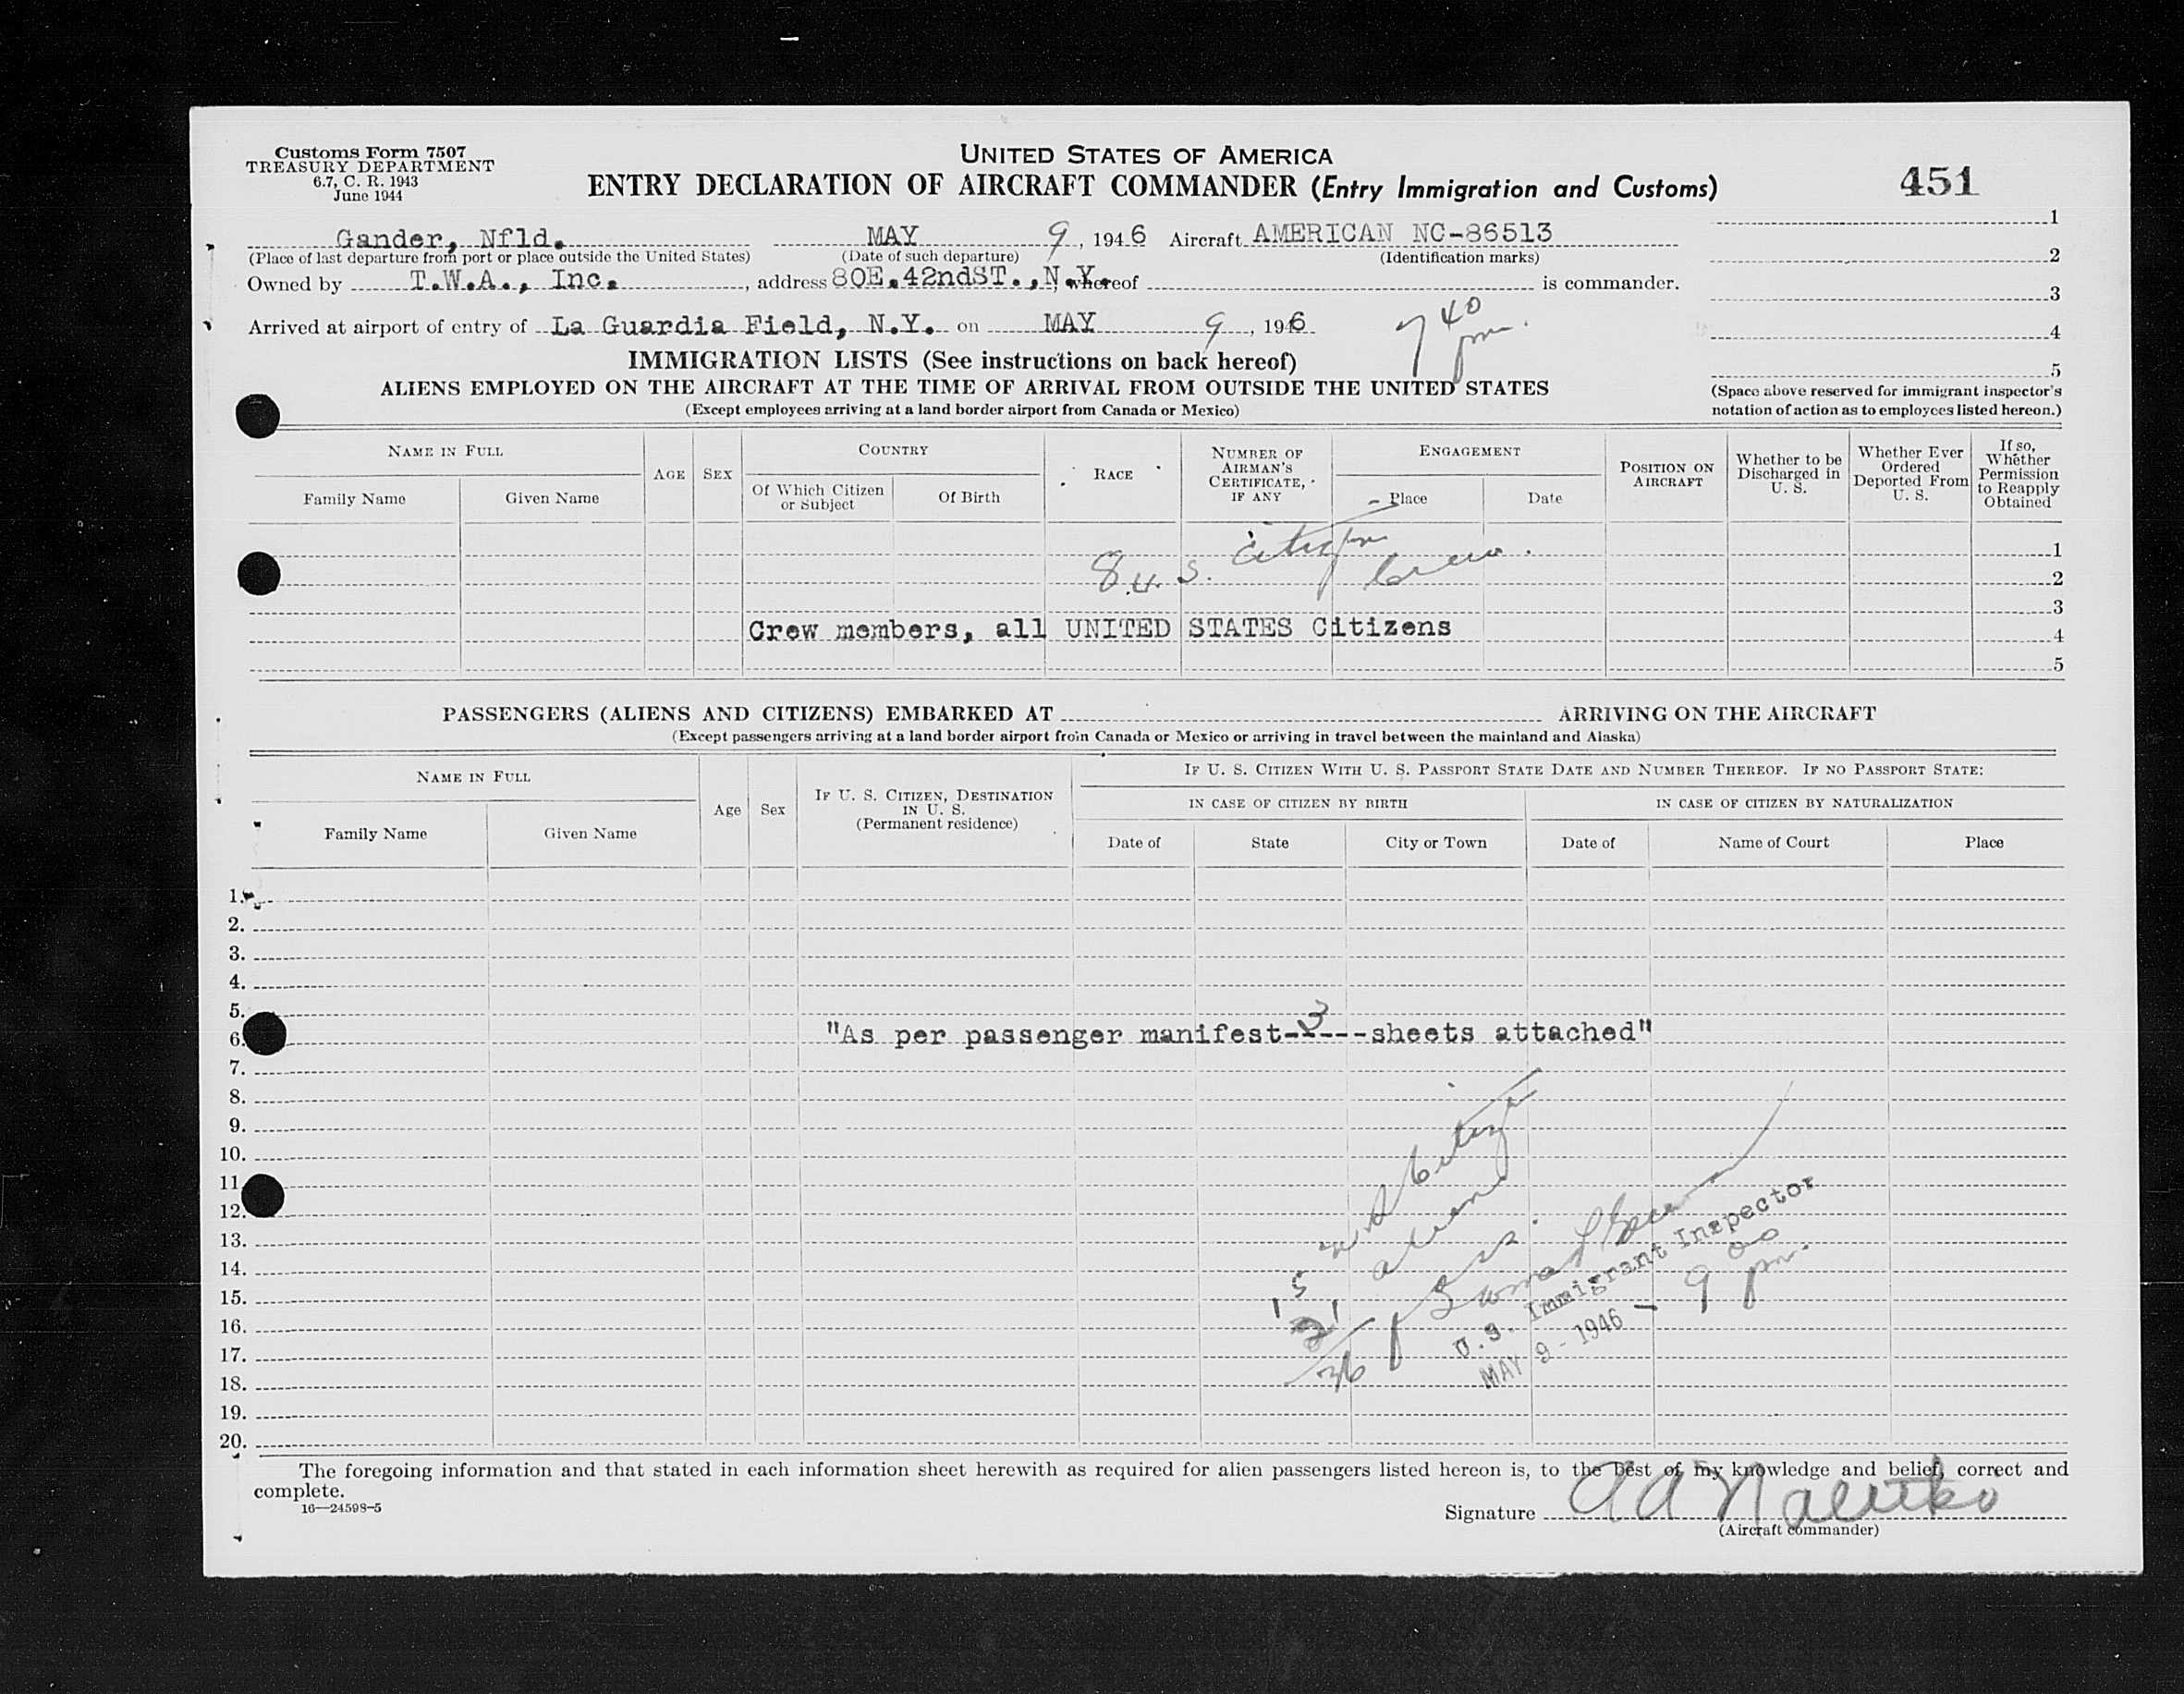 Customs Form 7507
TREASURY DEPARTMENT
6.7, C. R. 1943
June 1944
UNITED STATES OF AMERICA
ENTRY DECLARATION OF AIRCRAFT COMMANDER (Entry Immigration and Customs)
451
Gander, Nfld. MAY 9, 1946 Aircraft AMERICAN NC-86513
(Place of last departure from port or place outside the United States) (Date of such departure) (Identification marks)
Owned by T.W.A., Inc., address 80E.42ndST.,N.Y. whereof is commander.
Arrived at airport of entry of La Guardia Field, N.Y. on MAY 9, 1946 7 40 pm.
1
2
3
4
5
(Space above reserved for immigrant inspector's
notation of action as to employees listed hereon.)
IMMIGRATION LISTS (See instructions on back hereof)
ALIENS EMPLOYED ON THE AIRCRAFT AT THE TIME OF ARRIVAL FROM OUTSIDE THE UNITED STATES
(Except employees arriving at a land border airport from Canada or Mexico)
NAME IN FULL
Family Name Given Name
AGE
SEX
COUNTRY
Of Which Citizen or Subject
Of Birth
RACE
NUMBER OF AIRMAN'S CERTIFICATE, IF ANY
ENGAGEMENT
Place Date
POSITION ON AIRCRAFT
Whether to be Discharged in U. S.
Whether Ever Ordered Deported From U. S.
If so, Whether Permission to Reapply Obtained
8 U. S. citizen crew.
1
2
3
Crew members, all UNITED STATES Citizens 4
5
PASSENGERS (ALIENS AND CITIZENS) EMBARKED AT ARRIVING ON THE AIRCRAFT
(Except passengers arriving at a land border airport from Canada or Mexico or arriving in travel between the mainland and Alaska)
NAME IN FULL
Family Name Given Name
Age
Sex
IF U. S. CITIZEN, DESTINATION IN U. S.
(Permanent residence)
IF U. S. CITIZEN WITH U. S. PASSPORT STATE DATE AND NUMBER THEREOF. IF NO PASSPORT STATE:
IN CASE OF CITIZEN BY BIRTH IN CASE OF CITIZEN BY NATURALIZATION
Date of State City or Town Date of Name of Court Place
1.
2.
3.
4.
5.
6. "As per passenger manifest-3---sheets attached"
7.
8.
9.
10.
11.
12.
13.
14.
15.
16.
17.
18.
19.
20.
15 U S Citizen
21 aliens
36 pass.
U. S. Immigrant Inspector
MAY 9 - 1946 - 9 00 pm.
The foregoing information and that stated in each information sheet herewith as required for alien passengers listed hereon is, to the best of my knowledge and belief, correct and
complete.
16—24598-5
Signature
(Aircraft commander)